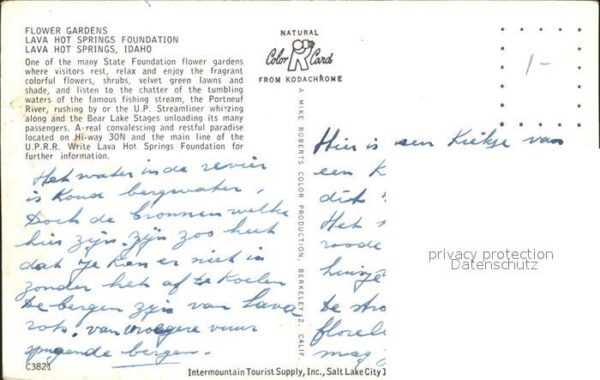 FLOWER GARDENS
LAVA HOT SPRINGS FOUNDATION
LAVA HOT SPRINGS, IDAHO
One of the many State Foundation flower gardens
where visitors rest, relax and enjoy the fragrant
colorful flowers, shrubs, velvet green lawns and
shade, and listen to the chatter of the tumbling
waters of the famous fishing stream, the Portneuf
River, rushing by or the U.P. Streamliner whizzing
along and the Bear Lake Stages unloading its many
passengers. A-real convalescing and restful paradise
located on Hi-way 30N and the main line of the
U.P.R.R. Write Lava Hot Springs Foundation for
further information.
Het water in de revier
is koud bergwater.
Doch de bronnen welke
hier zijn. zijn zoo heet
dat je kan er niet in
zonder het af te koelen
De bergen zijn van lava
rots. van vroegere vuur
spugende bergen.
C3821
NATURAL
Color Card
FROM KODACHROME
A MIKE ROBERTS COLOR PRODUCTION, BERKELEY 2, CALIF.
1-
Hier is een Kiekje van
een K
dit
Het
roode
huisje
De stro
floreli
mag
privacy protection
Datenschutz
Intermountain Tourist Supply, Inc., Salt Lake City 1